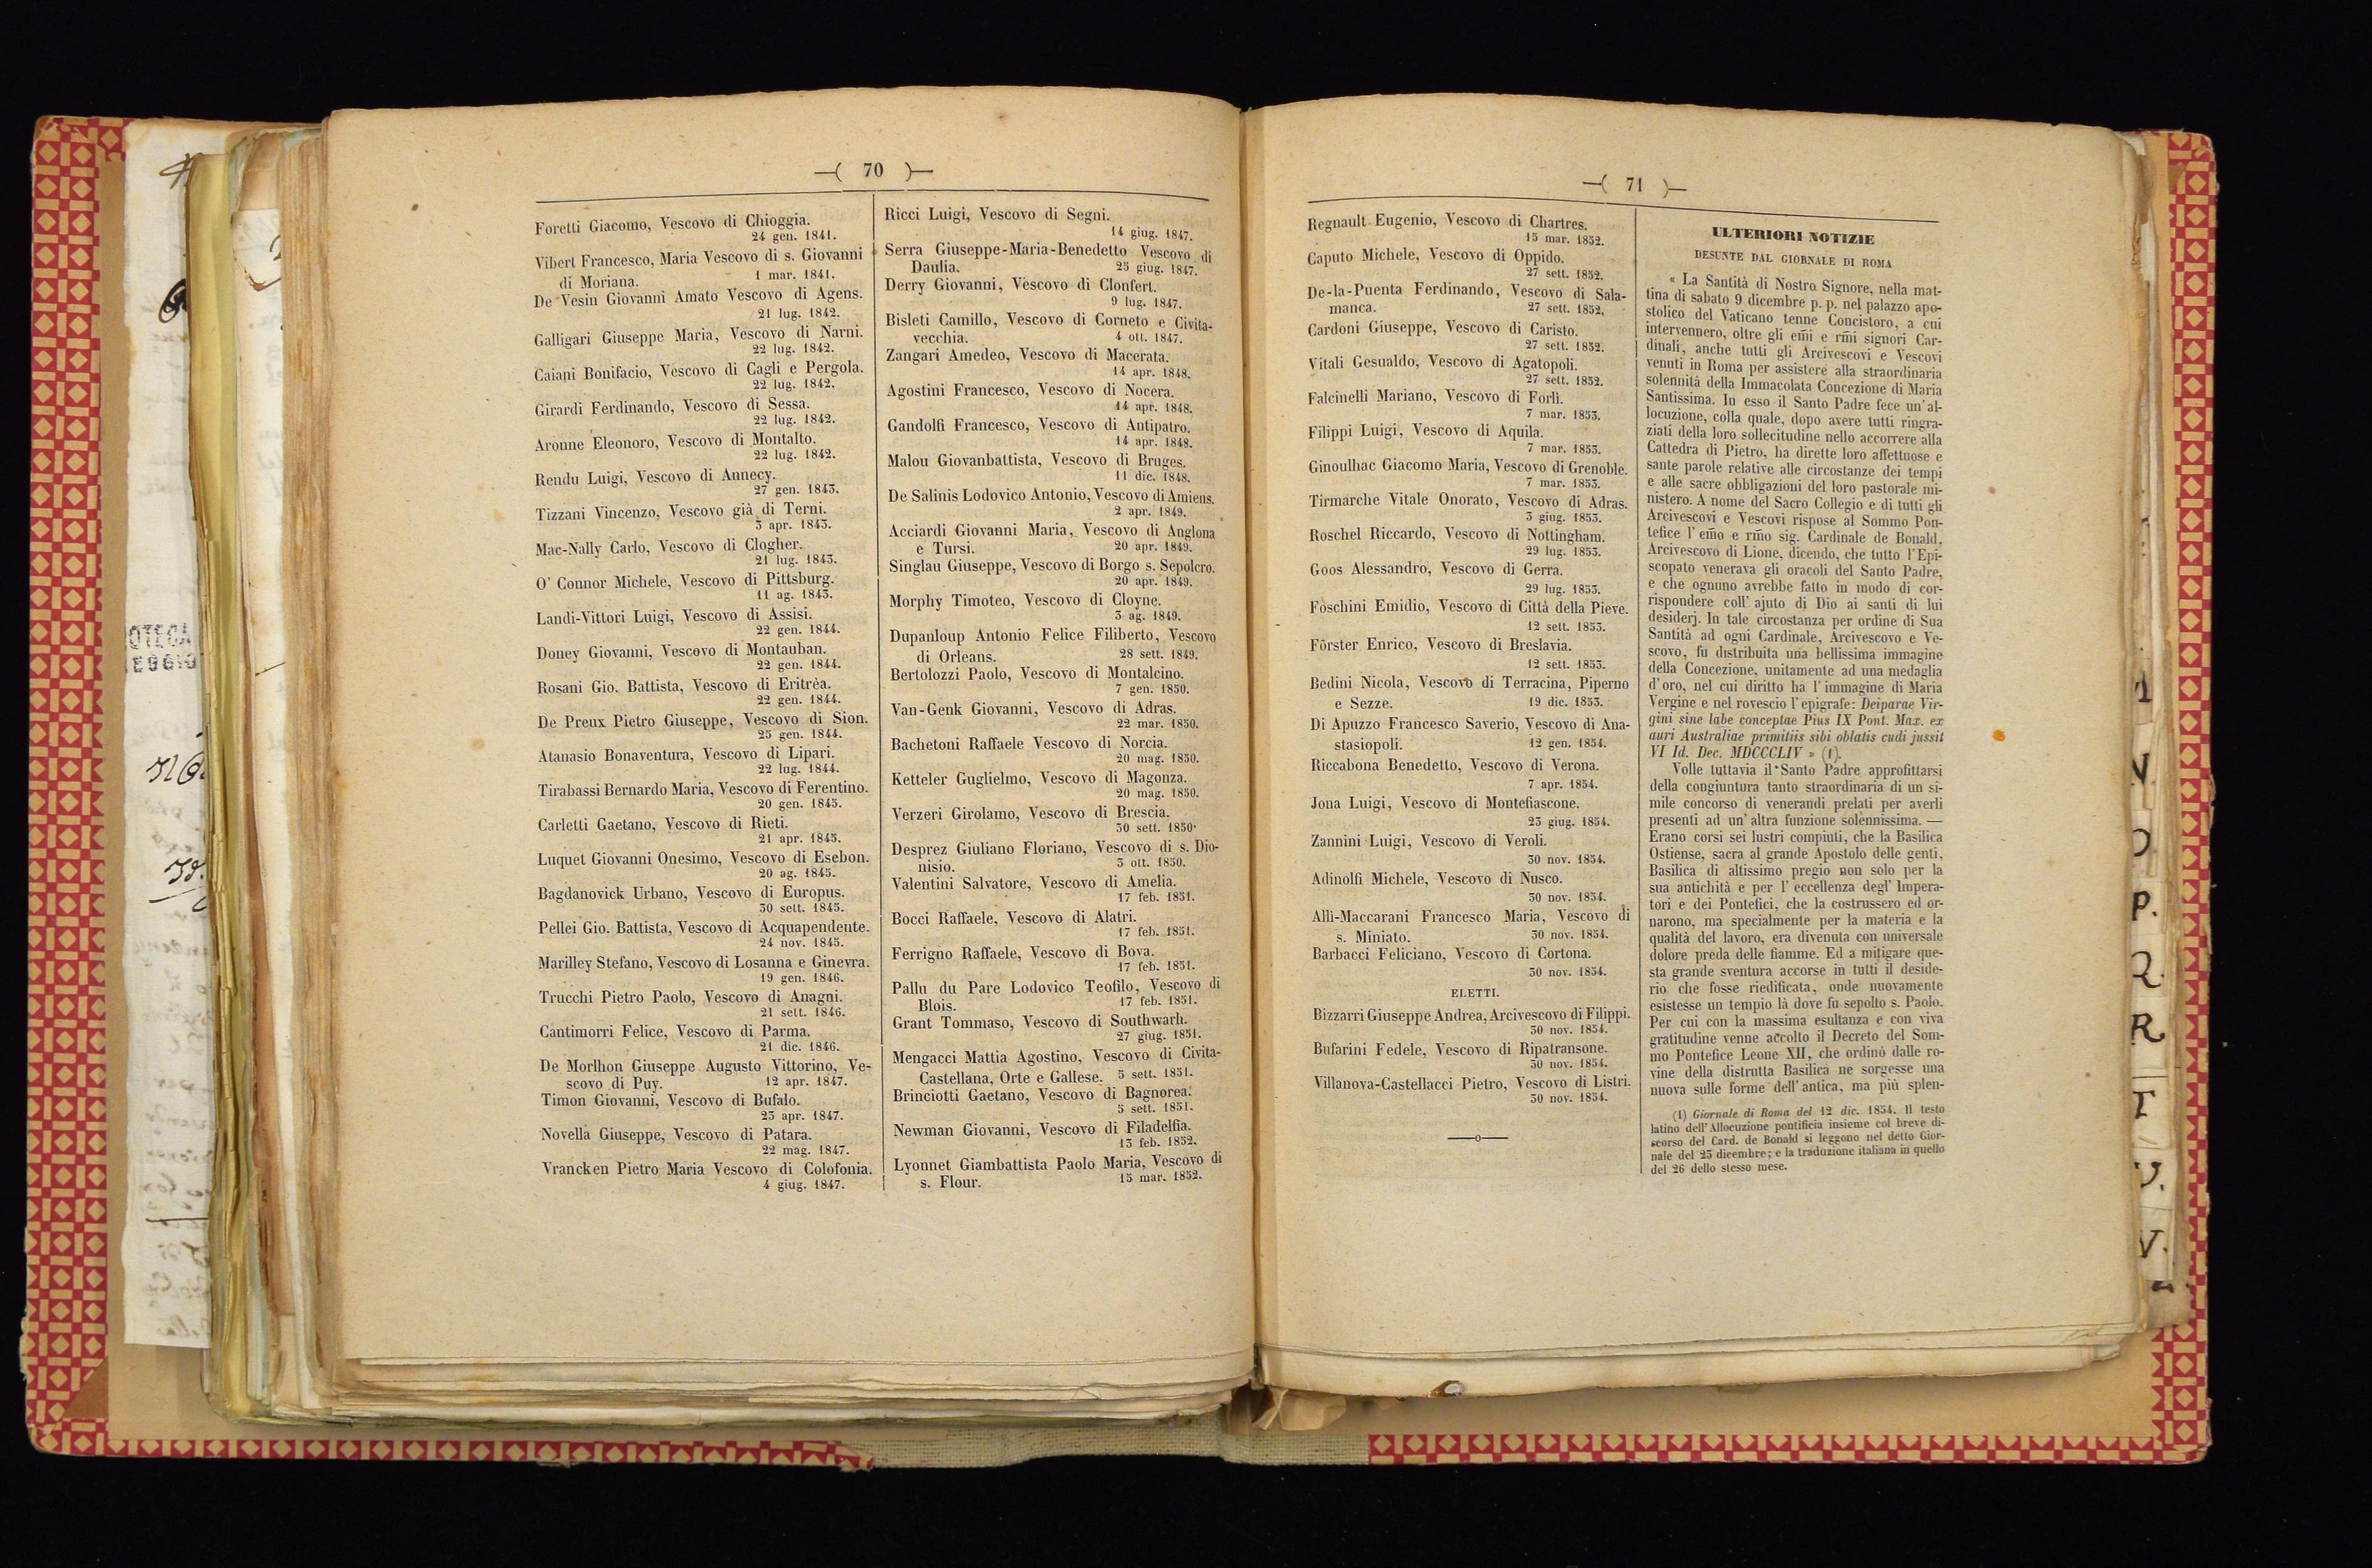 —( 70 )—
Foretti Giacomo, Vescovo di Chioggia.
24 gen. 1841.
Vibert Francesco, Maria Vescovo di s. Giovanni
di Moriana. 1 mar. 1841.
De Vesin Giovanni Amato Vescovo di Agens.
21 lug. 1842.
Galligari Giuseppe Maria, Vescovo di Narni.
22 lug. 1842.
Caiani Bonifacio, Vescovo di Cagli e Pergola.
22 lug. 1842.
Girardi Ferdinando, Vescovo di Sessa.
22 lug. 1842.
Aronne Eleonoro, Vescovo di Montalto.
22 lug. 1842.
Rendu Luigi, Vescovo di Annecy.
27 gen. 1843.
Tizzani Vincenzo, Vescovo già di Terni.
3 apr. 1843.
Mac-Nally Carlo, Vescovo di Clogher.
21 lug. 1843.
O' Connor Michele, Vescovo di Pittsburg.
11 ag. 1843.
Landi-Vittori Luigi, Vescovo di Assisi.
22 gen. 1844.
Doney Giovanni, Vescovo di Montauban.
22 gen. 1844.
Rosani Gio. Battista, Vescovo di Eritrèa.
22 gen. 1844.
De Preux Pietro Giuseppe, Vescovo di Sion.
25 gen. 1844.
Atanasio Bonaventura, Vescovo di Lipari.
22 lug. 1844.
Tirabassi Bernardo Maria, Vescovo di Ferentino.
20 gen. 1845.
Carletti Gaetano, Vescovo di Rieti.
21 apr. 1845.
Luquet Giovanni Onesimo, Vescovo di Esebon.
20 ag. 1845.
Bagdanovick Urbano, Vescovo di Europus.
30 sett. 1845.
Pellei Gio. Battista, Vescovo di Acquapendente.
24 nov. 1845.
Marilley Stefano, Vescovo di Losanna e Ginevra.
19 gen. 1846.
Trucchi Pietro Paolo, Vescovo di Anagni.
21 sett. 1846.
Cantimorri Felice, Vescovo di Parma.
21 dic. 1846.
De Morlhon Giuseppe Augusto Vittorino, Ve-
scovo di Puy. 12 apr. 1847.
Timon Giovanni, Vescovo di Bufalo.
23 apr. 1847.
Novella Giuseppe, Vescovo di Patara.
22 mag. 1847.
Vrancken Pietro Maria Vescovo di Colofonia.
4 giug. 1847.
Ricci Luigi, Vescovo di Segni.
14 giug. 1847.
Serra Giuseppe-Maria-Benedetto Vescovo di
Daulia. 25 giug. 1847.
Derry Giovanni, Vescovo di Clonfert.
9 lug. 1847.
Bisleti Camillo, Vescovo di Corneto e Civita-
vecchia. 4 ott. 1847.
Zangari Amedeo, Vescovo di Macerata.
14 apr. 1848.
Agostini Francesco, Vescovo di Nocera.
14 apr. 1848.
Gandolfi Francesco, Vescovo di Antipatro.
14 apr. 1848.
Malou Giovanbattista, Vescovo di Bruges.
11 dic. 1848.
De Salinis Lodovico Antonio, Vescovo di Amiens.
2 apr. 1849.
Acciardi Giovanni Maria, Vescovo di Anglona
e Tursi. 20 apr. 1849.
Singlau Giuseppe, Vescovo di Borgo s. Sepolcro.
20 apr. 1849.
Morphy Timoteo, Vescovo di Cloyne.
3 ag. 1849.
Dupanloup Antonio Felice Filiberto, Vescovo
di Orleans. 28 sett. 1849.
Bertolozzi Paolo, Vescovo di Montalcino.
7 gen. 1850.
Van-Genk Giovanni, Vescovo di Adras.
22 mar. 1850.
Bachetoni Raffaele Vescovo di Norcia.
20 mag. 1850.
Ketteler Guglielmo, Vescovo di Magonza.
20 mag. 1850.
Verzeri Girolamo, Vescovo di Brescia.
30 sett. 1850.
Desprez Giuliano Floriano, Vescovo di s. Dio-
nisio. 3 ott. 1850.
Valentini Salvatore, Vescovo di Amelia.
17 feb. 1851.
Bocci Raffaele, Vescovo di Alatri.
17 feb. 1851.
Ferrigno Raffaele, Vescovo di Bova.
17 feb. 1851.
Pallu du Pare Lodovico Teofilo, Vescovo di
Blois. 17 feb. 1851.
Grant Tommaso, Vescovo di Southwarh.
27 giug. 1851.
Mengacci Mattia Agostino, Vescovo di Civita-
Castellana, Orte e Gallese. 5 sett. 1851.
Brinciotti Gaetano, Vescovo di Bagnorea.
5 sett. 1851.
Newman Giovanni, Vescovo di Filadelfia.
13 feb. 1852.
Lyonnet Giambattista Paolo Maria, Vescovo di
s. Flour. 15 mar. 1852.
—( 71 )—
Regnault Eugenio, Vescovo di Chartres.
15 mar. 1852.
Caputo Michele, Vescovo di Oppido.
27 sett. 1852.
De-la-Puenta Ferdinando, Vescovo di Sala-
manca. 27 sett. 1852.
Cardoni Giuseppe, Vescovo di Caristo.
27 sett. 1852.
Vitali Gesualdo, Vescovo di Agatopoli.
27 sett. 1852.
Falcinelli Mariano, Vescovo di Forlì.
7 mar. 1853.
Filippi Luigi, Vescovo di Aquila.
7 mar. 1853.
Ginoulhac Giacomo Maria, Vescovo di Grenoble.
7 mar. 1853.
Tirmarche Vitale Onorato, Vescovo di Adras.
3 giug. 1853.
Roschel Riccardo, Vescovo di Nottingham.
29 lug. 1853.
Goos Alessandro, Vescovo di Gerra.
29 lug. 1853.
Foschini Emidio, Vescovo di Città della Pieve.
12 sett. 1853.
Förster Enrico, Vescovo di Breslavia.
12 sett. 1853.
Bedini Nicola, Vescovo di Terracina, Piperno
e Sezze. 19 dic. 1853.
Di Apuzzo Francesco Saverio, Vescovo di Ana-
stasiopoli. 12 gen. 1854.
Riccabona Benedetto, Vescovo di Verona.
7 apr. 1854.
Jona Luigi, Vescovo di Montefiascone.
23 giug. 1854.
Zannini Luigi, Vescovo di Veroli.
30 nov. 1854.
Adinolfi Michele, Vescovo di Nusco.
30 nov. 1854.
Alli-Maccarani Francesco Maria, Vescovo di
s. Miniato. 30 nov. 1854.
Barbacci Feliciano, Vescovo di Cortona.
30 nov. 1854.
ELETTI.
Bizzarri Giuseppe Andrea, Arcivescovo di Filippi.
30 nov. 1854.
Bufarini Fedele, Vescovo di Ripatransone.
30 nov. 1854.
Villanova-Castellacci Pietro, Vescovo di Listri.
30 nov. 1854.
ULTERIORI NOTIZIE
DESUNTE DAL GIORNALE DI ROMA
« La Santità di Nostro Signore, nella mat-
tina di sabato 9 dicembre p. p. nel palazzo apo-
stolico del Vaticano tenne Concistoro, a cui
intervennero, oltre gli em̃i e rm̃i signori Car-
dinali, anche tutti gli Arcivescovi e Vescovi
venuti in Roma per assistere alla straordinaria
solennità della Immacolata Concezione di Maria
Santissima. In esso il Santo Padre fece un'al-
locuzione, colla quale, dopo avere tutti ringra-
ziati della loro sollecitudine nello accorrere alla
Cattedra di Pietro, ha dirette loro affettuose e
sante parole relative alle circostanze dei tempi
e alle sacre obbligazioni del loro pastorale mi-
nistero. A nome del Sacro Collegio e di tutti gli
Arcivescovi e Vescovi rispose al Sommo Pon-
tefice l'em̃o e rm̃o sig. Cardinale de Bonald,
Arcivescovo di Lione, dicendo, che tutto l'Epi-
scopato venerava gli oracoli del Santo Padre,
e che ognuno avrebbe fatto in modo di cor-
rispondere coll' ajuto di Dio ai santi di lui
desiderj. In tale circostanza per ordine di Sua
Santità ad ogni Cardinale, Arcivescovo e Ve-
scovo, fu distribuita una bellissima immagine
della Concezione, unitamente ad una medaglia
d'oro, nel cui diritto ha l'immagine di Maria
Vergine e nel rovescio l'epigrafe: Deiparae Vir-
gini sine labe conceptae Pius IX Pont. Max. ex
auri Australiae primitiis sibi oblatis cudi jussit
VI Id. Dec. MDCCCLIV » (1).
Volle tuttavia il Santo Padre approfittarsi
della congiuntura tanto straordinaria di un si-
mile concorso di venerandi prelati per averli
presenti ad un' altra funzione solennissima. —
Erano corsi sei lustri compiuti, che la Basilica
Ostiense, sacra al grande Apostolo delle genti,
Basilica di altissimo pregio non solo per la
sua antichità e per l' eccellenza degl' Impera-
tori e dei Pontefici, che la costrussero ed or-
narono, ma specialmente per la materia e la
qualità del lavoro, era divenuta con universale
dolore preda delle fiamme. Ed a mitigare que-
sta grande sventura accorse in tutti il deside-
rio che fosse riedificata, onde nuovamente
esistesse un tempio là dove fu sepolto s. Paolo.
Per cui con la massima esultanza e con viva
gratitudine venne accolto il Decreto del Som-
mo Pontefice Leone XII, che ordinò dalle ro-
vine della distrutta Basilica ne sorgesse una
nuova sulle forme dell'antica, ma più splen-
(1) Giornale di Roma del 12 dic. 1854. Il testo
latino dell'Allocuzione pontificia insieme col breve di-
scorso del Card. de Bonald si leggono nel detto Gior-
nale del 23 dicembre; e la traduzione italiana in quello
del 26 dello stesso mese.
OTECA
EGGIO
N
O
P.
Q.
R
T
V.